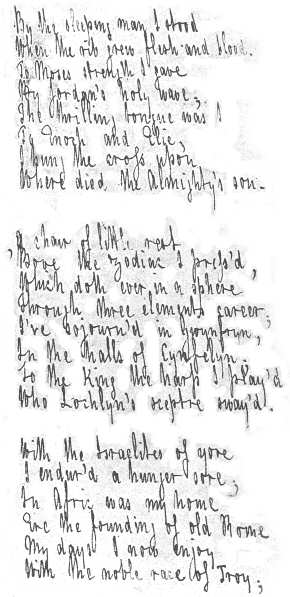 By the sleeping man I stood
When the rib grew flesh and blood.
To Moses strength I gave
By Jordan's holy wave;
The thrilling tongue was I
To Enoch and Elie;
I hung the cross upon,
Where died the Almighty's son.
A chair of little rest
'Bove the Zodiac I press'd,
Which doth ever in a sphere
Through three elements career;
I've sojourn'd in Gwynfryn,
In the halls of Cynfelyn;
To the King the harp I play'd
Who Lochlyn's sceptre sway'd.
With the Israelites of yore
I endur'd a hunger sore;
In Afric was my home
Ere the founding of old Rome
My days I now enjoy
With the noble race of Troy;